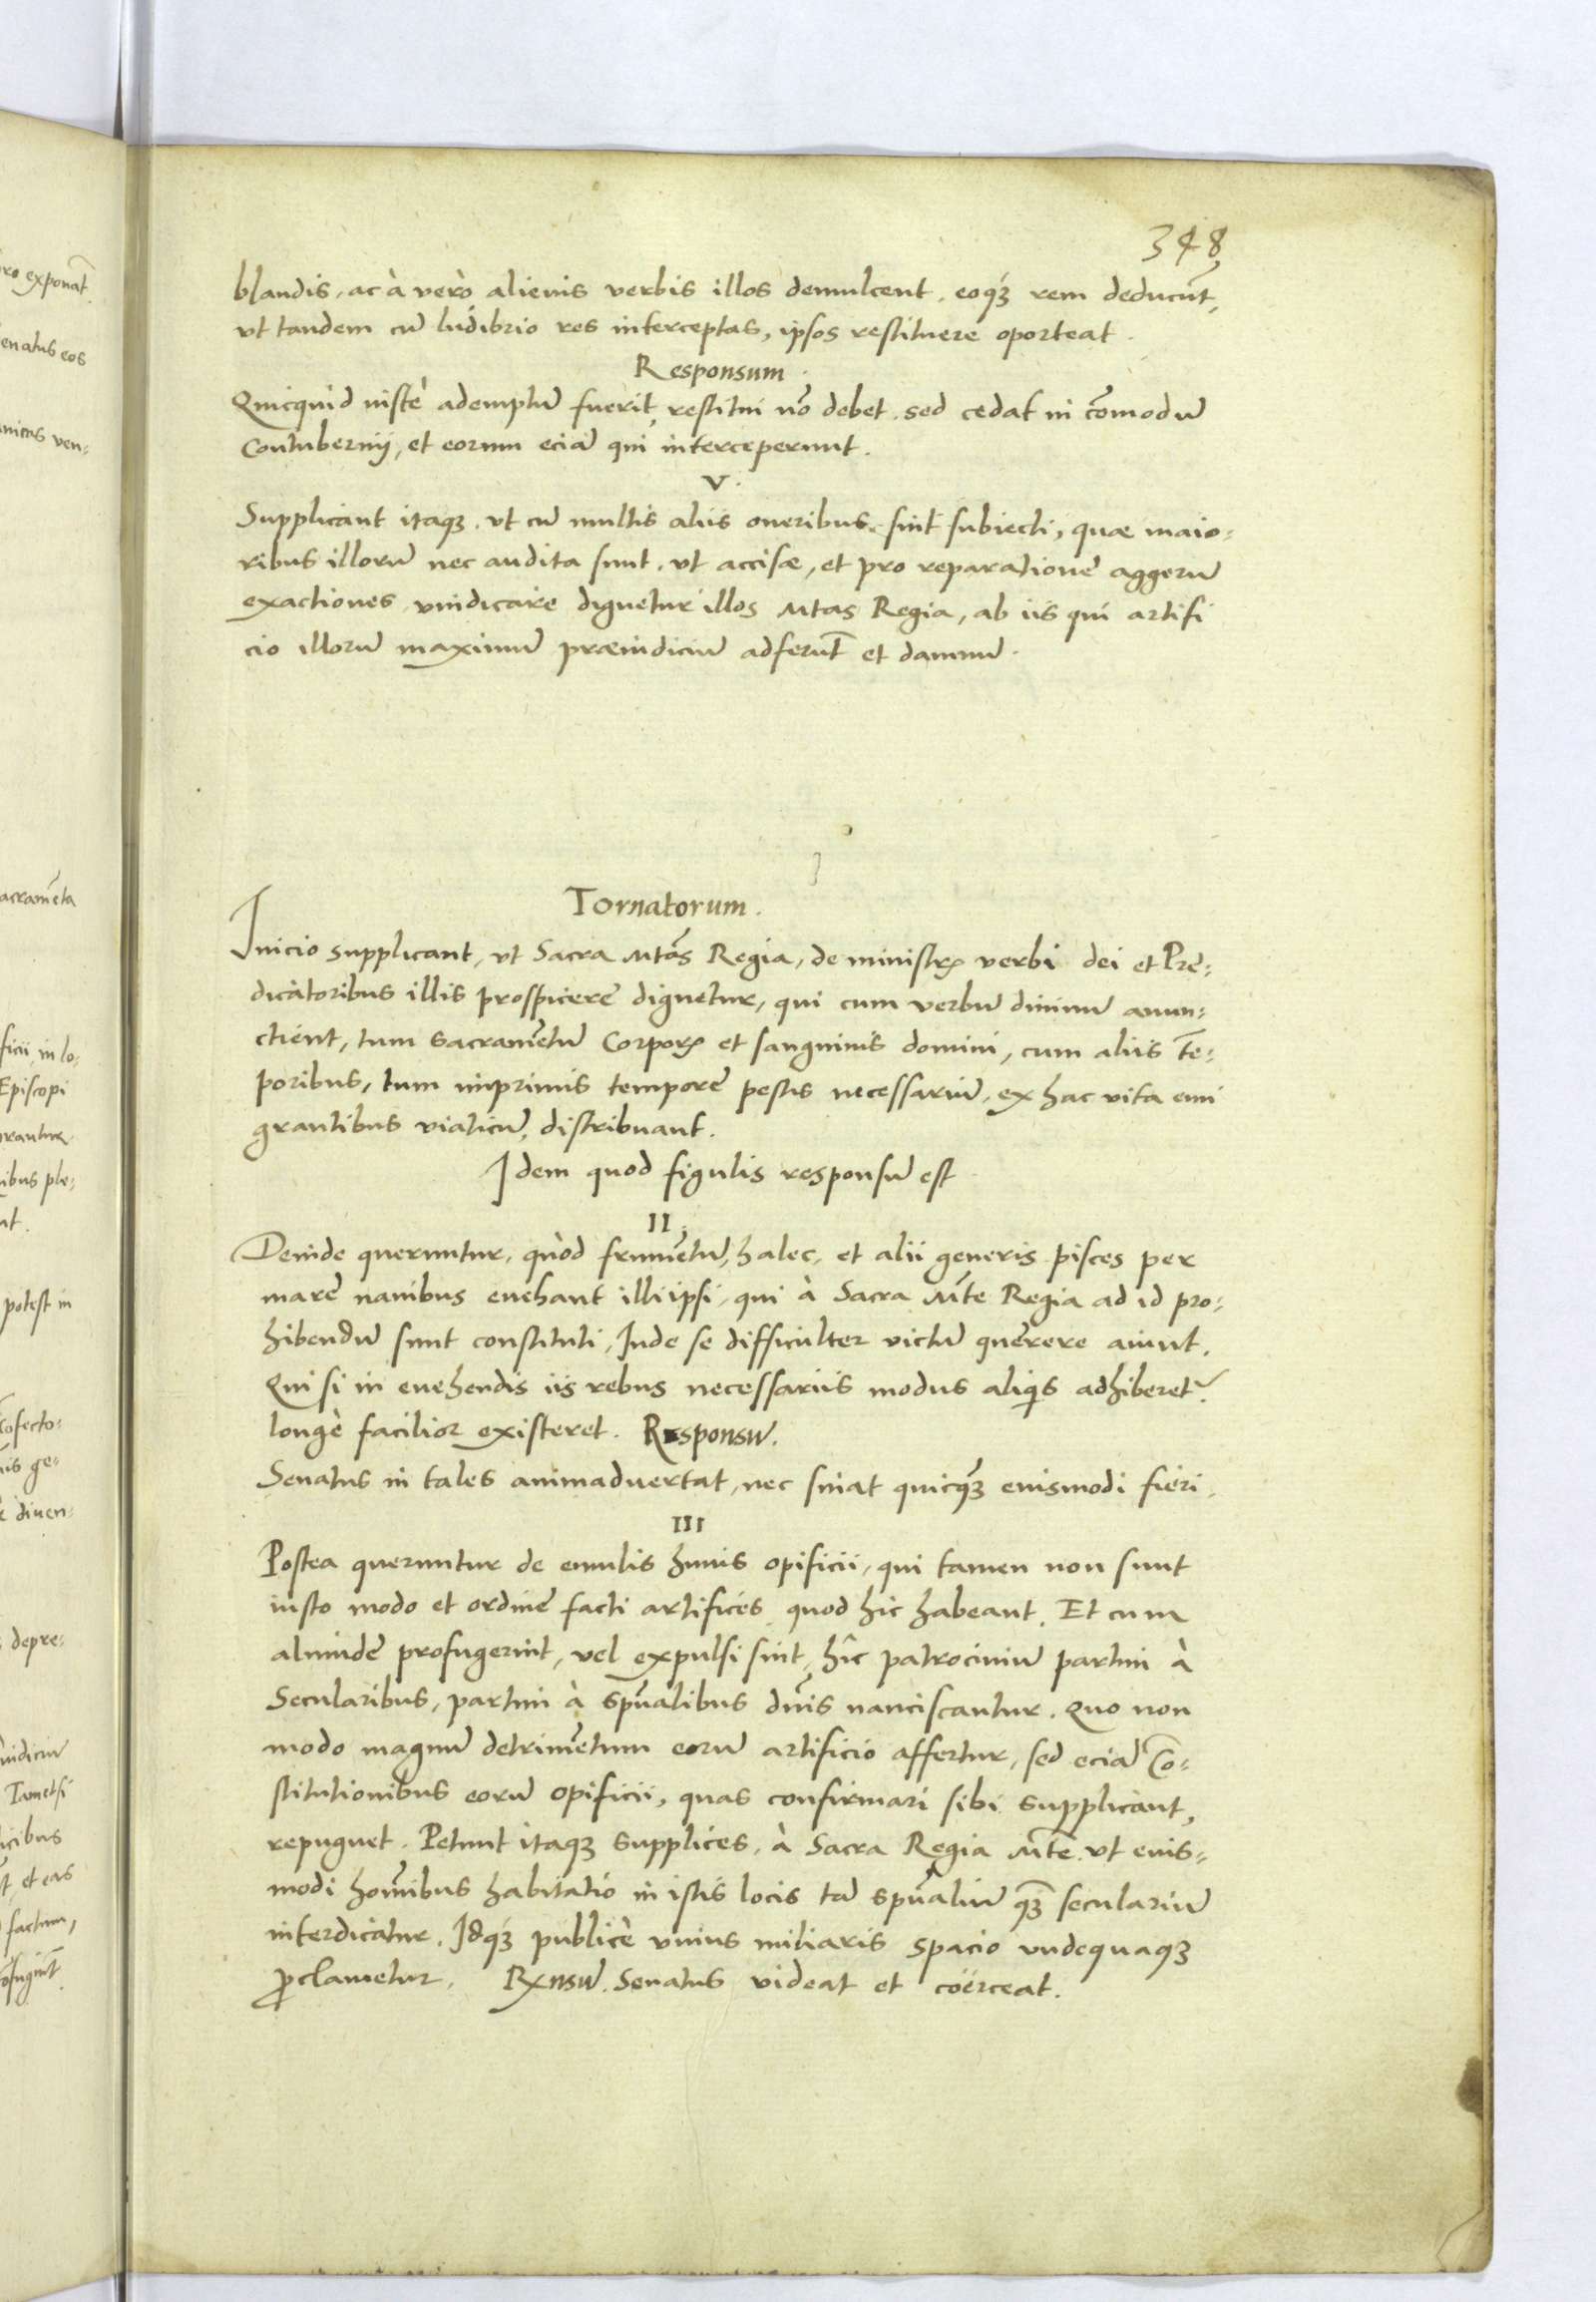 348
blandis, ac à verò alienis verbis illos demulcent, eoqꝫ rem deducūt,
vt tandem cū ludibrio res interceptas, ipsos restituere oporteat.
Responsum.
Quicquid iustè ademptū fuerit, restitui nō debet, sed cedat in cōmodū
Contubernij, et eorum eciā qui interceperunt.
V.
Supplicant itaqꝫ, vt cū multis aliis oneribus sint subiecti, quæ maio-
ribus illorū nec audita sunt, vt accisæ, et pro reparatione aggerū
exactiones, vindicare dignetur illos Mtas Regia, ab iis qui artifi
cio illorū maximū præiudiciū adferūt et damnū.
Tornatorum.
Inicio supplicant, vt Sacra Mtās Regia, de ministrꝭ verbi dei et Præ-
dicatoribus illis prospicere dignetur, qui cum verbū diuinū anun-
ctient, tum sacramētū Corporꝭ et sanguinis domini, cum aliis tē-
poribus, tum imprimis tempore pestis necessariū, ex hac vita emi
grantibus viaticū, distribuant.
Idem quod figulis responsū est
II.
Deinde queruntur, quòd frumētū, halec, et alii generis pisces per
mare nauibus euehant illi ipsi, qui à Sacra Mte Regia ad id pro-
hibendū sunt constituti, Inde se difficulter victū quærere aiunt.
Qui si in euehendis iis rebus necessariis modus aliqis adhiberet
longè facilior existeret. Responsū.
Senatus in tales animaduertat, nec sinat quicqꝫ euismodi fieri.
III
Postea queruntur de emulis huius opificii, qui tamen non sunt
iusto modo et ordine facti artifices, quod hic habeant. Et cum
aliunde profugerint, vel expulsi sint, hîc patrociniū partim à
Secularibus, partim à spūalibus dnīs nanciscantur. Quo non
modo magnū detrimētum eorū artificio affertur, sed eciā Cō-
stitutionibus eorū opificii, quas confirmari sibi supplicant,
repugnet. Petunt itaqꝫ supplices, à Sacra Regia Mte vt euis-
modi homībus habitatio in istis locis tā spūaliū qꝫ seculariū
interdicatur. Idqꝫ publicè vnius miliaris spacio vndequaqꝫ
ꝓclametur. Rꝭnsū. Senatus videat et coërceat.